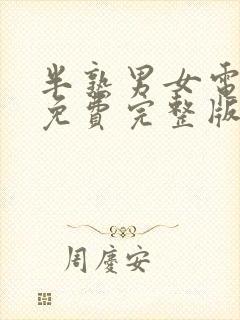 半熟男女電
免費完整版
周慶安